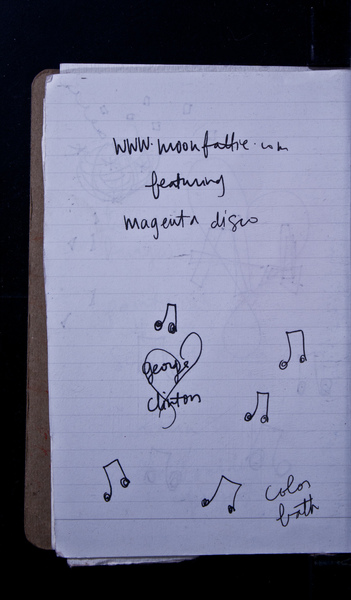 www.moonfattie.com
featuring
magenta disco
george
clinton
color
bath